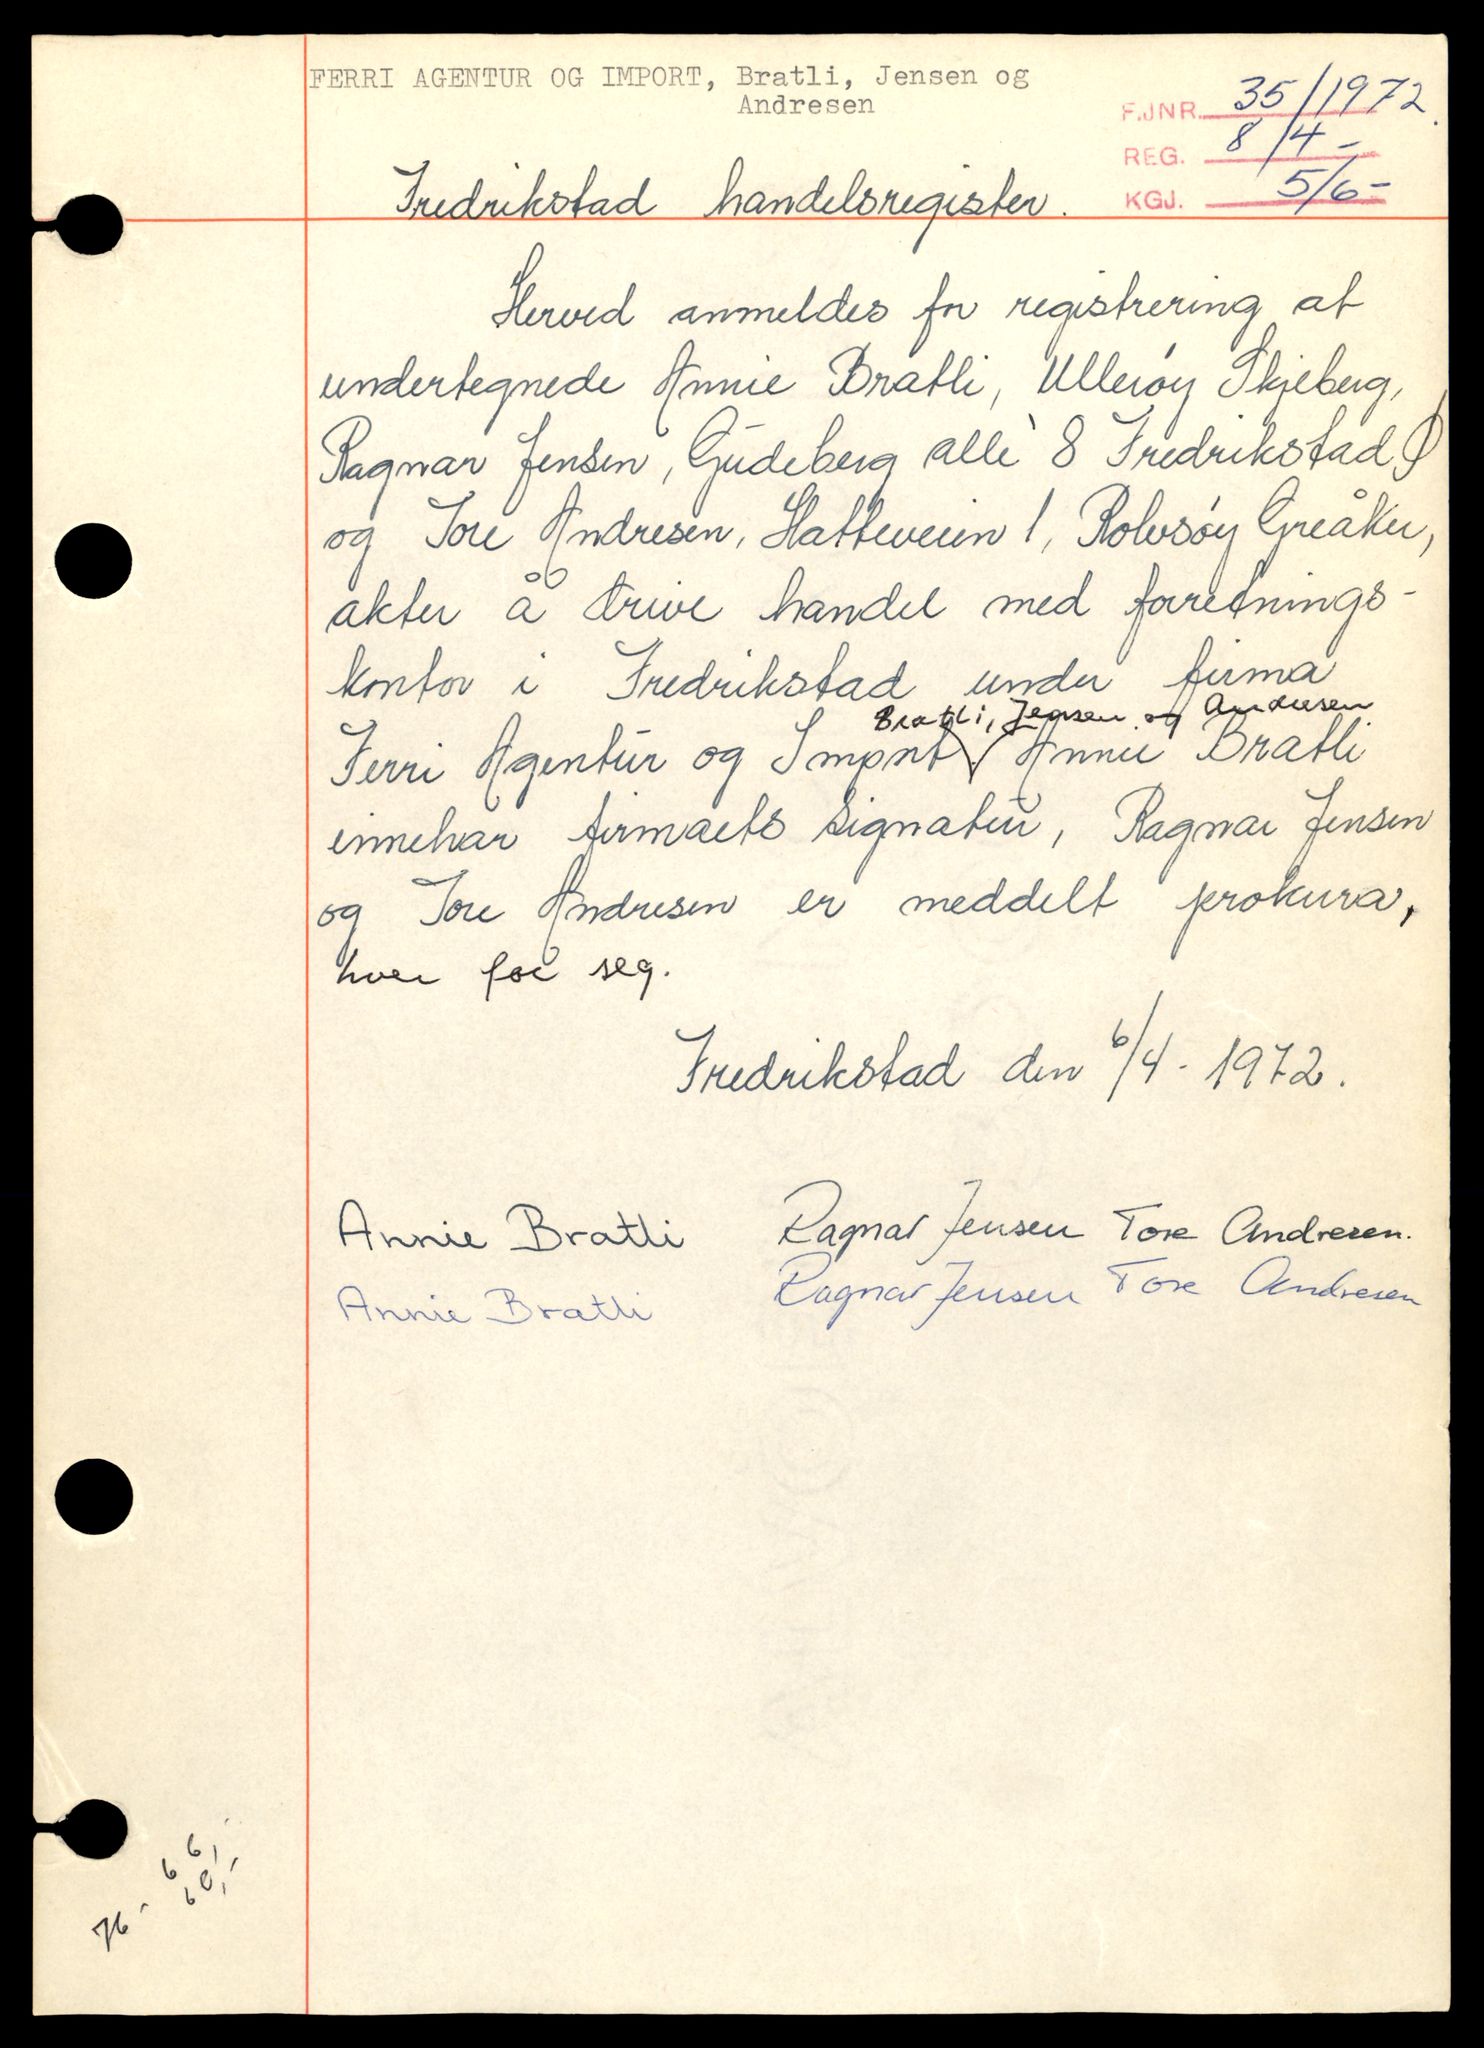 FERRI AGENTUR OG IMPORT, Bratli, Jensen og
Andresen
F.JNR. 35/1972.
REG. 8/4 -
KGJ. 5/6-
Fredrikstad handelsregister.
Herved anmeldes for registrering at
undertegnede Annie Bratli, Ullerøy Skjeberg,
Ragnar Jensen, Gudeberg allè 8 Fredrikstad Ø
og Tore Andresen, Hatteveien 1, Rolvsøy Greåker,
akter å drive handel med forretnings-
kontor i Fredrikstad under firma
Bratli, Jensen og Andresen
Ferri Agentur og Import √ Annie Bratli
innehar firmaets signatur, Ragnar Jensen
og Tore Andresen er meddelt prokura,
hver for seg.
Fredrikstad den 6/4 - 1972.
Annie Bratli Ragnar Jensen Tore Andresen.
Annie Bratli Ragnar Jensen Tore Andresen
66,-
60,-
76-